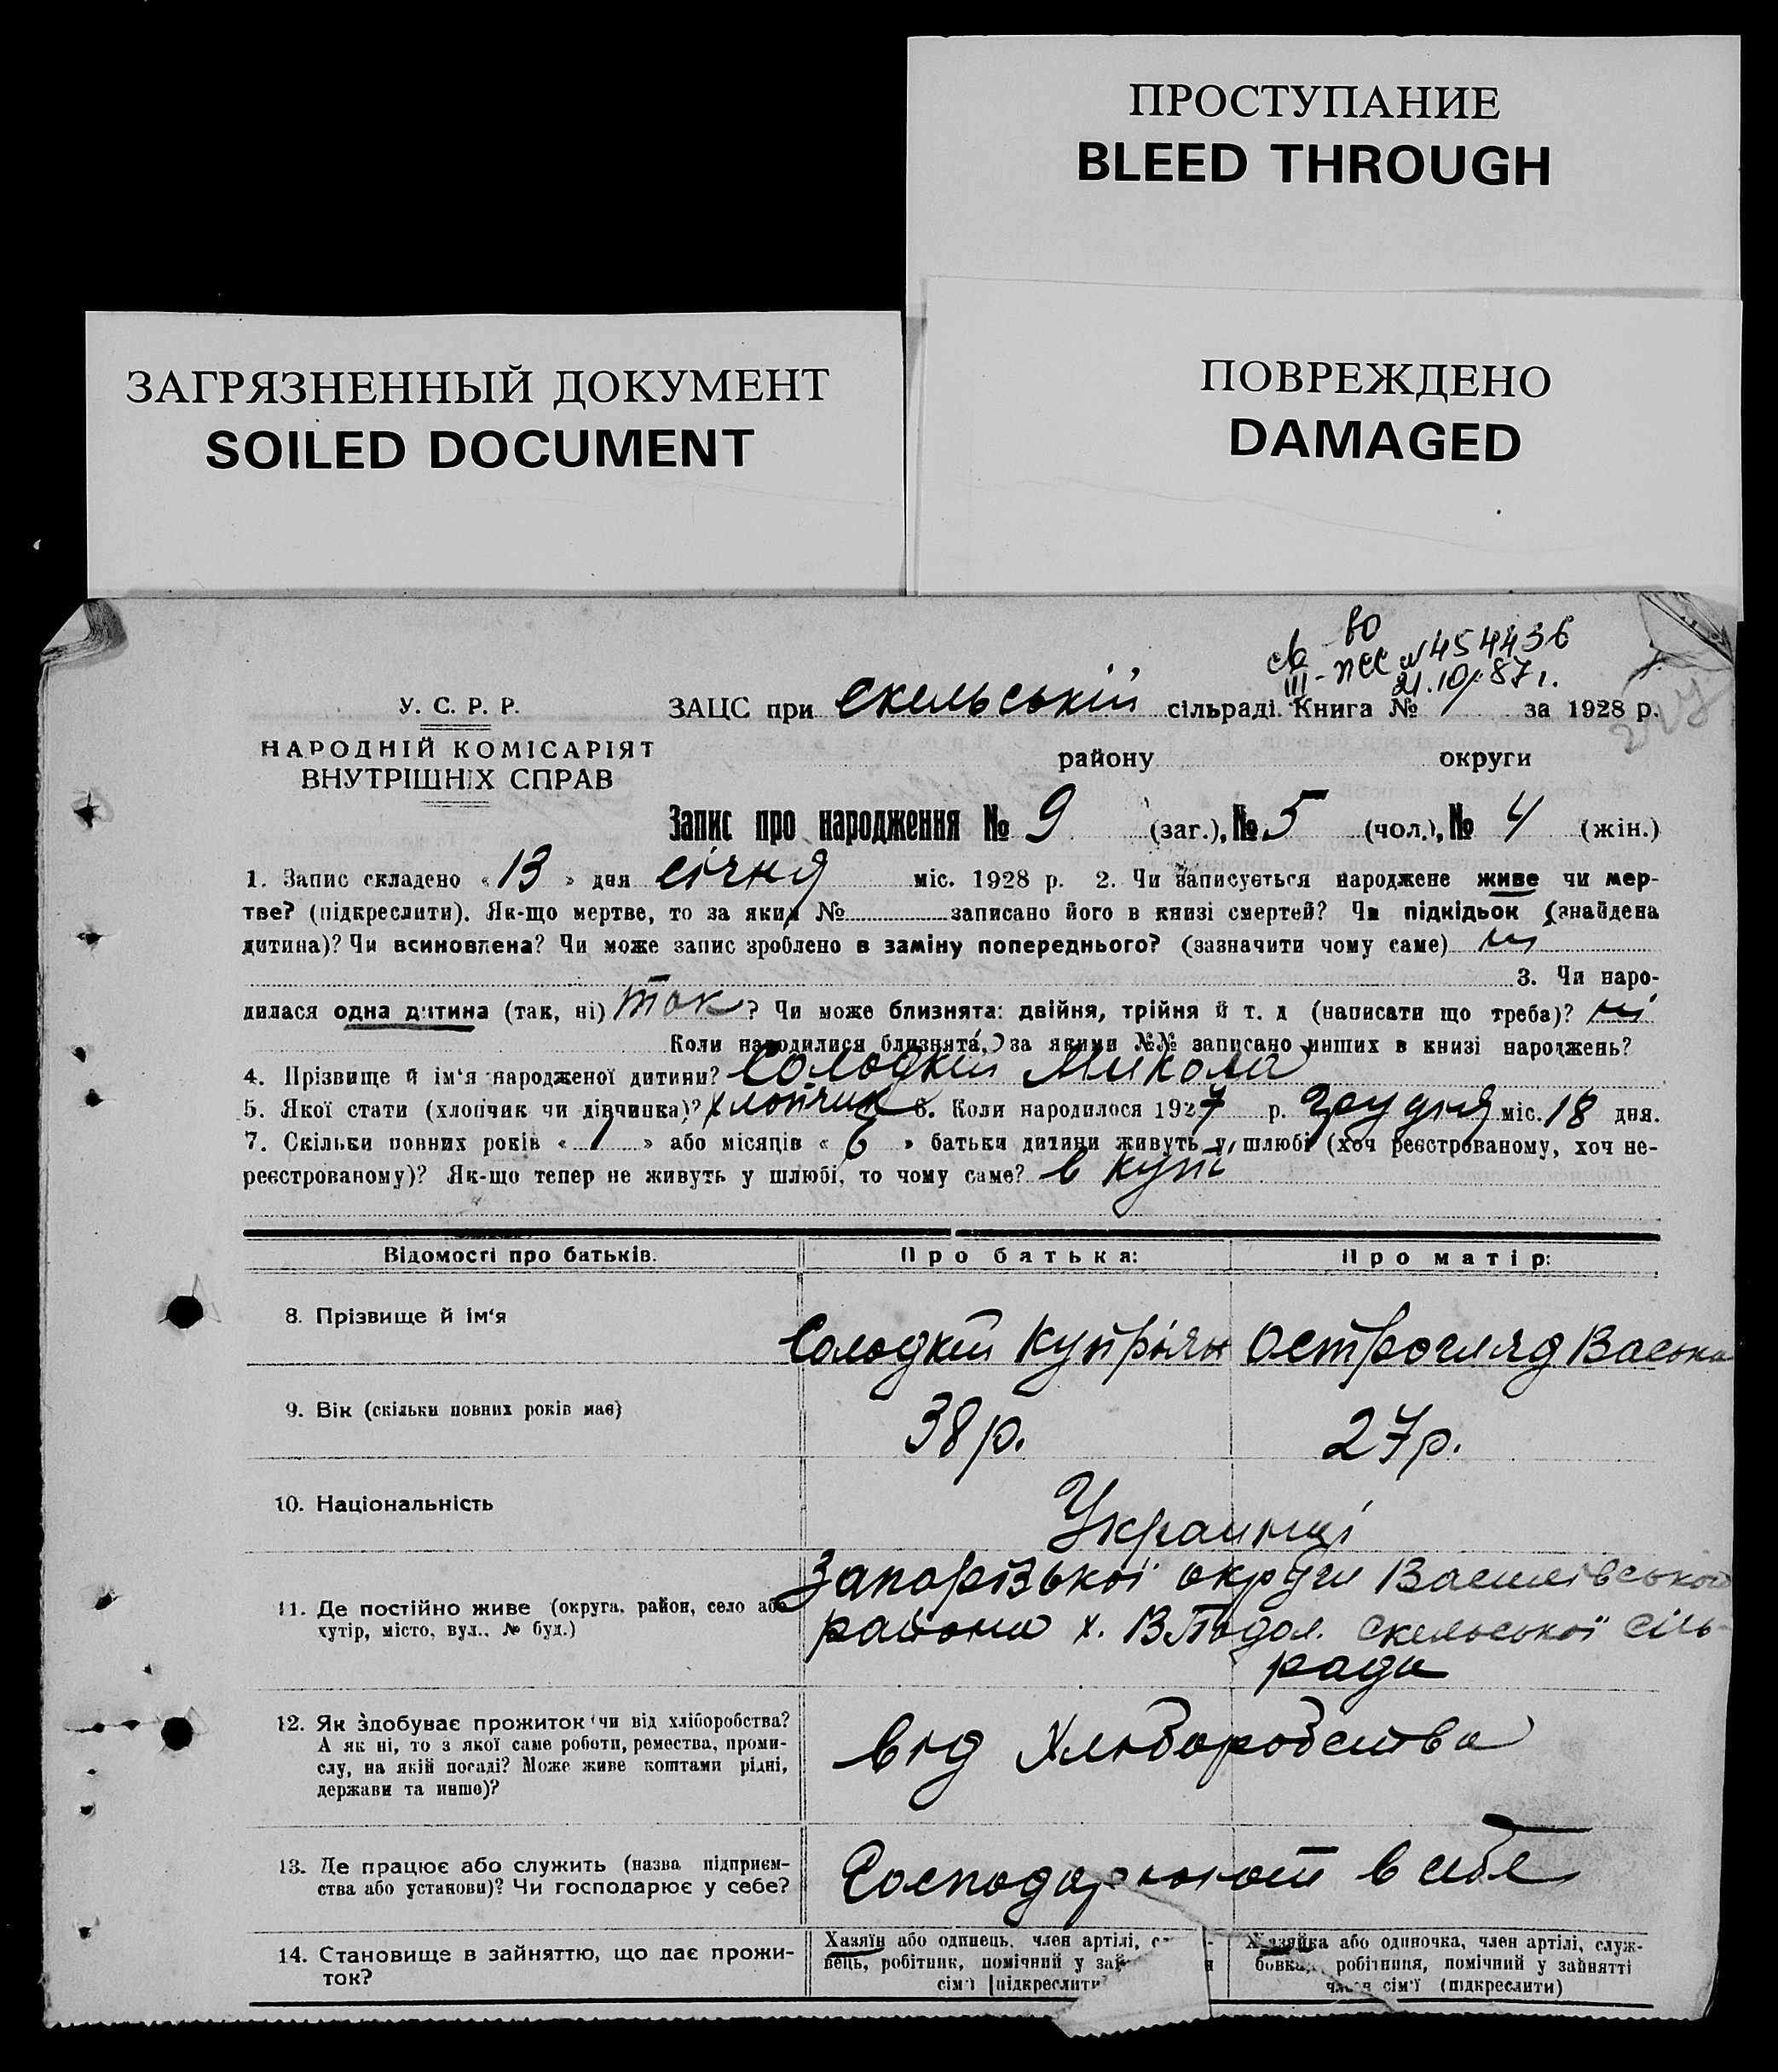 ПРОСТУПАНИЕ
BLEED THROUGH
ЗАГРЯЗНЕННЫЙ ДОКУМЕНТ
SOILED DOCUMENT
ПОВРЕЖДЕНО
DAMAGED
во
св III-ПСС № 454436
21.10.87г.
У. С. Р. Р.
НАРОДНІЙ КОМІСАРІЯТ
ВНУТРІШНІХ СПРАВ
ЗАЦС при Скельській сільраді. Книга № 1 за 1928 р.
району округи
Запис про народження № 9 (заг.), № 5 (чол.), № 4 (жін.)
1. Запис складено «13» дня січня міс. 1928 р. 2. Чи записується народжене живе чи мер-
тве? (підкреслити). Як-що мертве, то за яким № записано його в книзі смертей? Чи підкідьок (знайдена
дитина)? Чи всиновлена? Чи може запис зроблено в заміну попереднього? (зазначити чому саме) ні
3. Чи наро-
дилася одна дитина (так, ні) так? Чи може близнята: двійня, трійня й т. д (написати що треба)? ні
Коли народилися близнята, за якими №№ записано инших в книзі народжень?
4. Прізвище й ім'я народженої дитини? Солодкий Микола
5. Якої статі (хлопчик чи дівчинка)? хлопчик 6. Коли народилося 1927 р. Грудня міс. 18 дня.
7. Скільки повних років «1» або місяців «6» батьки дитини живуть у шлюбі (хоч реєстрованому, хоч не-
реєстрованому)? Як-що тепер не живуть у шлюбі, то чому саме? в купі
Відомості про батьків. Про батька: Про матір:
8. Прізвище й ім'я Солодкий Купріян Острогляд Васька
9. Вік (скільки повних років має) 38 р. 27 р.
10. Національність Украинці
11. Де постійно живе (округа, район, село або
хутір, місто, вул., № буд.)
Запорізької округи Василівського
района х. В Подол. Скельської сіль-
ради
12. Як здобуває прожиток чи від хліборобства?
А як ні, то з якої саме роботи, ремества, проми-
слу, на якій посаді? Може живе коштами рідні,
держави та инше)?
від Хліборобства
13. Де працює або служить (назва підприєм-
ства або установи)? Чи господарює у себе?
Господарюют в себе
14. Становище в зайняттю, що дає прожи-
ток?
Хазяїн або одинець, член артілі,
вець, робітник, помічний у
сім'ї [підкреслити]
Хазяйка або одиночка, член артілі, служ-
бовка, робітниця, помічний у зайнятті
члена сім'ї (підкреслити)